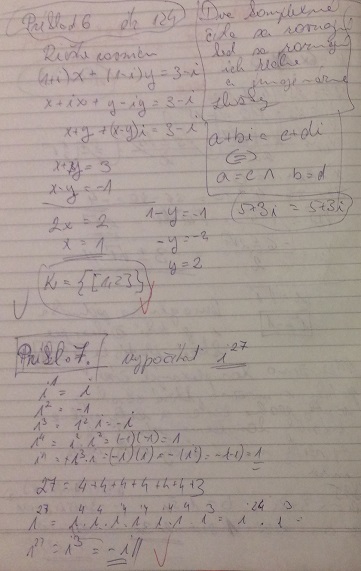 Príklad 6 str 124
Riešte rovnicu
(1+i)x + (1-i)y = 3-i
x+ix + y-iy = 3-i
x+y + (x-y)i = 3-i
x+y = 3
x-y = -1
2x = 2
x = 1
1-y = -1
-y = -2
y = 2
K = {[1,2]}
Dve komplexné
čísla sa rovnajú
keď sa rovnajú
ich reálne
a imaginárne
zložky
a+bi = c+di
⇔
a=c ∧ b=d
5+3i = 5+3i
Príklad 7.
vypočítať i²⁷
i¹ = i
i² = -1
i³ = i² i = -i
i⁴ = i² i² = (-1)(-1) = 1
27 = 4+4+4+4+4+4+3
i²⁷ = i⁴.i⁴.i⁴.i⁴.i⁴.i⁴.i³ = i²⁴.i³ =
i²⁷ = i³ = -i